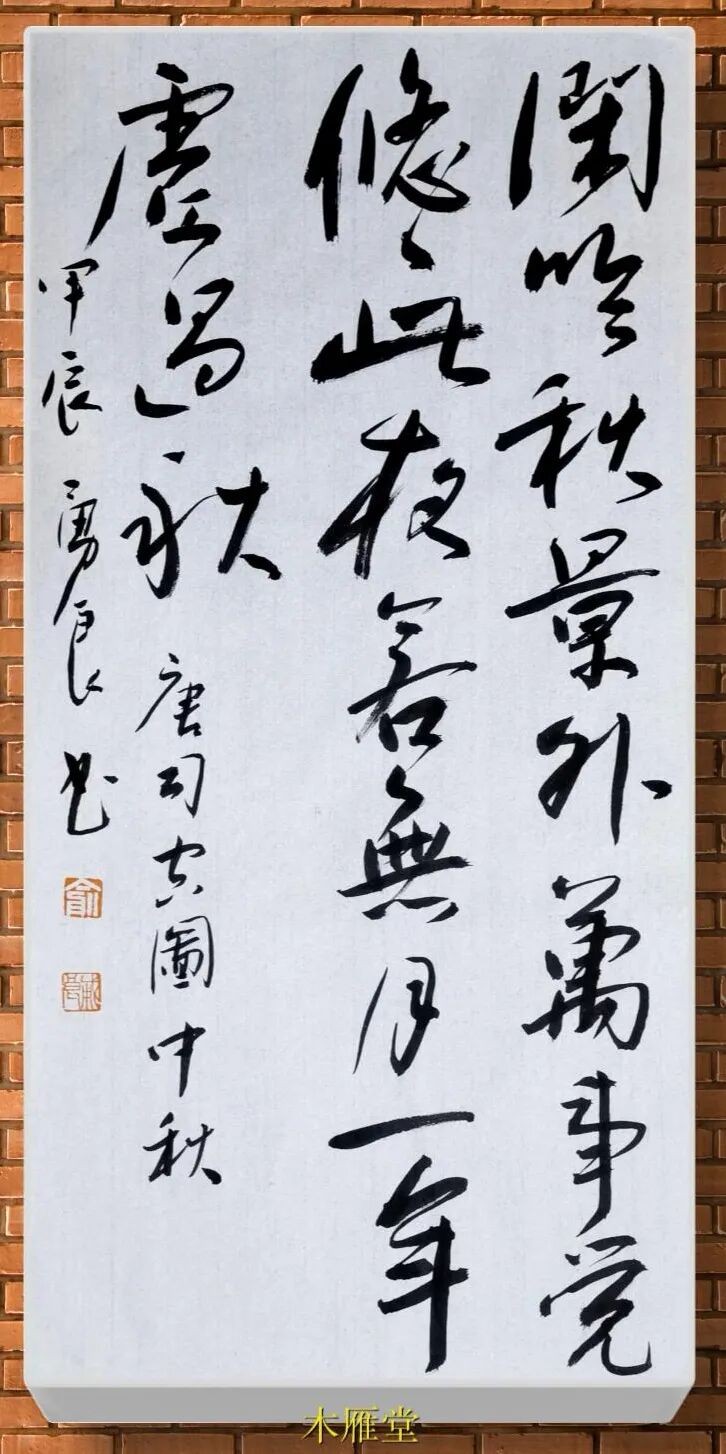 閑吟秋景外萬事觉
悠々此夜若無月一年
虛過秋 唐司空圖中秋
甲辰 勇良书
俞
木雁堂